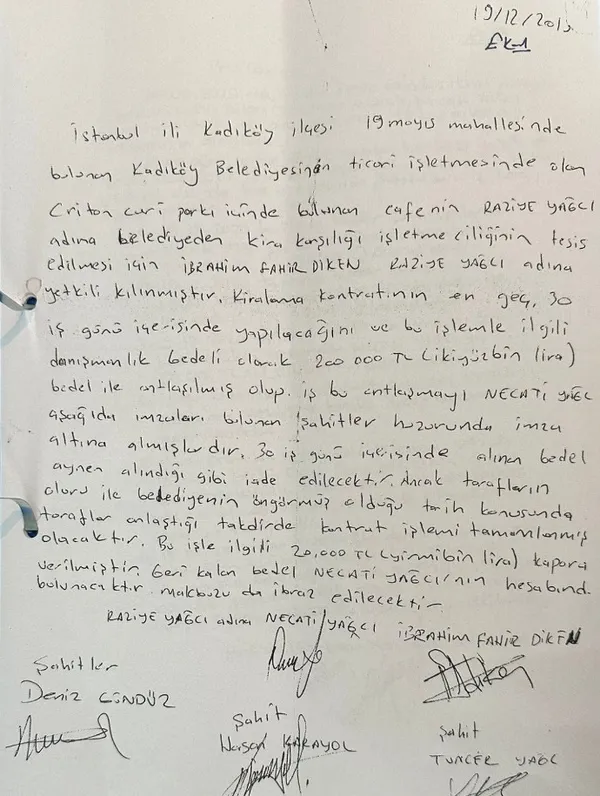 19/12/201
Ek-1
İstanbul ili Kadıköy ilçesi 19 mayıs mahallesinde
bulunan Kadıköy Belediyesinin ticari işletmesinde olan
Criton curi parkı içinde bulunan cafenin RAZİYE YAĞCI
adına belediyeden kira karşılığı işletmeciliğinin tesis
edilmesi için İBRAHİM FAHİR DİKEN RAZİYE YAĞCI adına
yetkili kılınmıştır. Kiralama kontratının en geç, 30
iş günü içerisinde yapılacağını ve bu işlemle ilgili
danışmanlık bedeli olarak 200 000 TL (ikiyüzbin lira)
bedel ile antlaşılmış olup. iş bu antlaşmayı NECATİ YAĞC
aşağıda imzaları bulunan şahitler huzurunda imza
altına almışlardır. 30 iş günü içerisinde alınan bedel
aynen alındığı gibi iade edilecektir. Ancak tarafların
oluru ile belediyenin öngörmüş olduğu tarih konusunda
taraflar anlaştığı takdirde kontrat işlemi tamamlanmış
olacaktır. Bu işle ilgili 20,000 TL (yirmibin lira) kapora
verilmiştir. Geri kalan bedel NECATİ YAĞCI'nın hesabınd
bulunacaktır makbuzu da ibraz edilecektir
RAZİYE YAĞCI adına NECATİ YAĞCI İBRAHİM FAHİR DİKEN
Şahitler
Deniz GÜNDÜZ
Şahit
Hasan KARAYOL
Şahit
TUNCER YAĞC